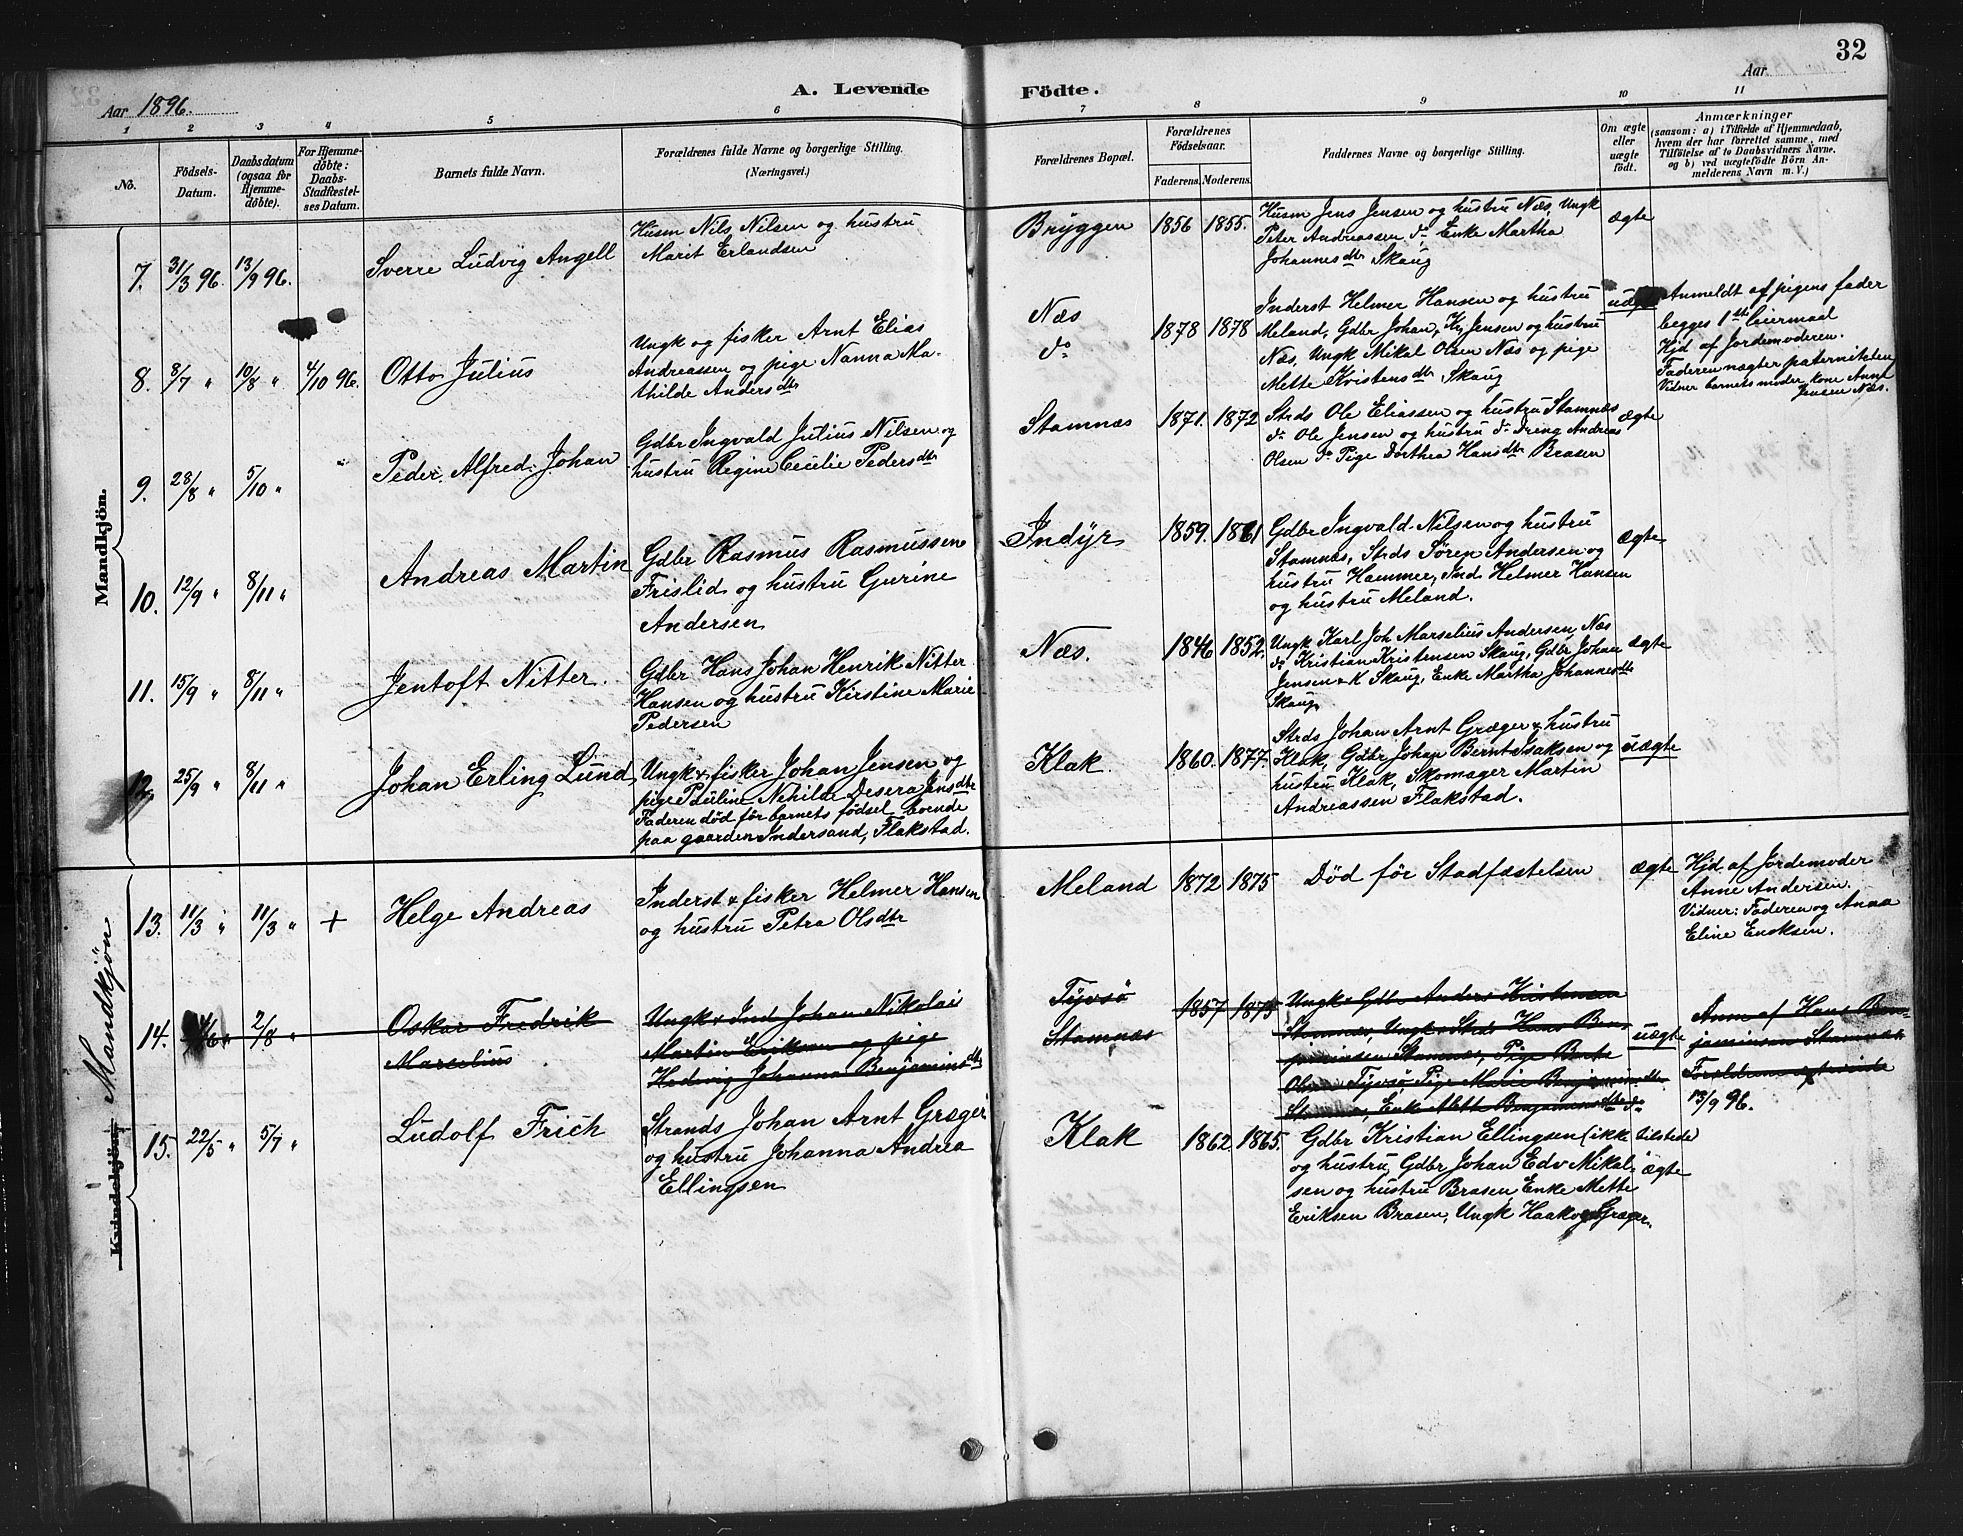 32
A. Levende Födte.
Aar 1896.
Aar
1 2 3 4 5 6 7 8 9 10 11
No.
Födsels-Datum.
Daabsdatum (ogsaa for Hjemmedöbte).
For Hjemmedöbte: Daabs-Stadfæstelses Datum.
Barnets fulde Navn.
Forældrenes fulde Navne og borgerlige Stilling.
(Næringsvei.)
Forældrenes Bopæl.
Forældrenes Födselsaar.
Faderens. Moderens.
Faddernes Navne og borgerlige Stilling.
Om ægte eller uægte födt.
Anmærkninger
(saasom: a) i Tilfælde af Hjemmedaab,
hvem der har forrettet samme, med
Tilföielse af to Daabsvidners Navne,
og b) ved uægtefödte Börn Anmelderens
Navn m. V.)
Mandkjön.
7. 31/3 96. 13/9 96.
Sverre Ludvig Angell
Husm Nils Nilsen og hustru
Marit Erlandsen
Bryggen 1856 1855.
Husm Jens Jensen og hustru Næs, Ungk
Peter Andreassen do, Enke Martha
Johannesdtr Skaug
ægte
8. 8/7 " 10/8 " 4/10 96.
Otto Julius
Ungk og fisker Arnt Elias
Andreassen og pige Nanna Ma-
thilde Andersdtr
Næs
do
1878 1878
Inderst Helmer Hansen og hustru
Meland, Gdbr Johan, Ky Jensen og hustru
Næs, Ungk Mikal Olsen Næs og pige
Mette Kristensdtr Skaug
uægte
Anmeldt af pigens fader
begges 1ste leiermaal
Hjd af Jordemoderen.
Faderen nægter paterniteten
Vidner barnets moder, kone Anne
Jensen Næs.
9. 28/8 " 5/10 "
Peder Alfred Johan
Gdbr Ingvald Julius Nilsen og
hustru Regine Cecilie Pedersdtr
Stamnæs 1871. 1872
Strds Ole Eliassen og hustru Stamnæs
do Ole Jensen og hustru do Dreng Andreas
Olsen do Pige Dorthea Hansdtr Brasen
ægte
10. 12/9 " 8/11 "
Andreas Martin
Gdbr Rasmus Rasmussen
Frislid og hustru Gurine
Andersen
Indyr 1859. 1861
Gdbr Ingvald Nilsen og hustru
Stamnæs, Strds Sören Andersen og
hustru Hammer, Ind. Helmer Hansen
og hustru Meland.
ægte
11. 15/9 " 8/11 "
Jentoft Nitter.
Gdbr Hans Johan Henrik Nitter
Hansen og hustru Kirstine Marie
Pedersen
Næs. 1846 1852.
Ungk Karl Joh Marselius Andersen, Næs
do Kristian Kristensen Skaug, Gdbr Johan
Jensen & K Skaug, Enke Martha Johannesdtr
Skaug
ægte
12. 25/9 " 8/11 "
Johan Erling Lund
Ungk & fisker Johan Jensen og
pige Pauline Nehilde Desera Jensdtr
Faderen död för barnets födsel, boende
paa gaarden Indersand, Flakstad.
Klak. 1860. 1877.
Strds Johan Arnt Græger & hustru
Klak, Gdbr Johan Bernt Isaksen og
hustru Klak, Skomager Martin
Andreassen Flakstad.
uægte
Kvindekjön. Mandkjön
13. 11/3 " 11/3 " +
Helge Andreas
Inderst & fisker Helmer Hansen
og hustru Petra Olsdtr
Meland 1872 1875
Död för Stadfæstelsen
ægte
Hjd af Jordemoder
Anne Andersen.
Vidner: Faderen og Anna
Eline Enoksen.
14. /6 " 2/8 "
Oskar Fredrik
Marselius
Ungk & Ind Johan Nikolai
Martin Eriksen og pige
Hedvig Johanna Benjaminsdtr
Tyvsö
Stamnæs
1857 1875
Ungk & Gdbr Anders Kristensen
Stamnæs, Ungk & Strds Hans Ben-
jaminsen Stamnæs, Pige Berte
Olsen Tyvsö Pige Marie Benjaminsdtr
Stamnæs, Enke Mette Benjaminsdtr do
uægte
Anm af Hans Ben-
jaminsen Stamnæs
Forældrene
13/9 96.
15. 22/5 " 5/7 "
Ludolf Frich
Strands Johan Arnt Græger
og hustru Johanna Andrea
Ellingsen
Klak 1862 1865.
Gdbr Kristian Ellingsen (ikke tilstede)
og hustru, Gdbr Johan Edv Mikal-
sen og hustru Brasen, Enke Mette
Eriksen Brasen, Ungk Haakon Græger.
ægte